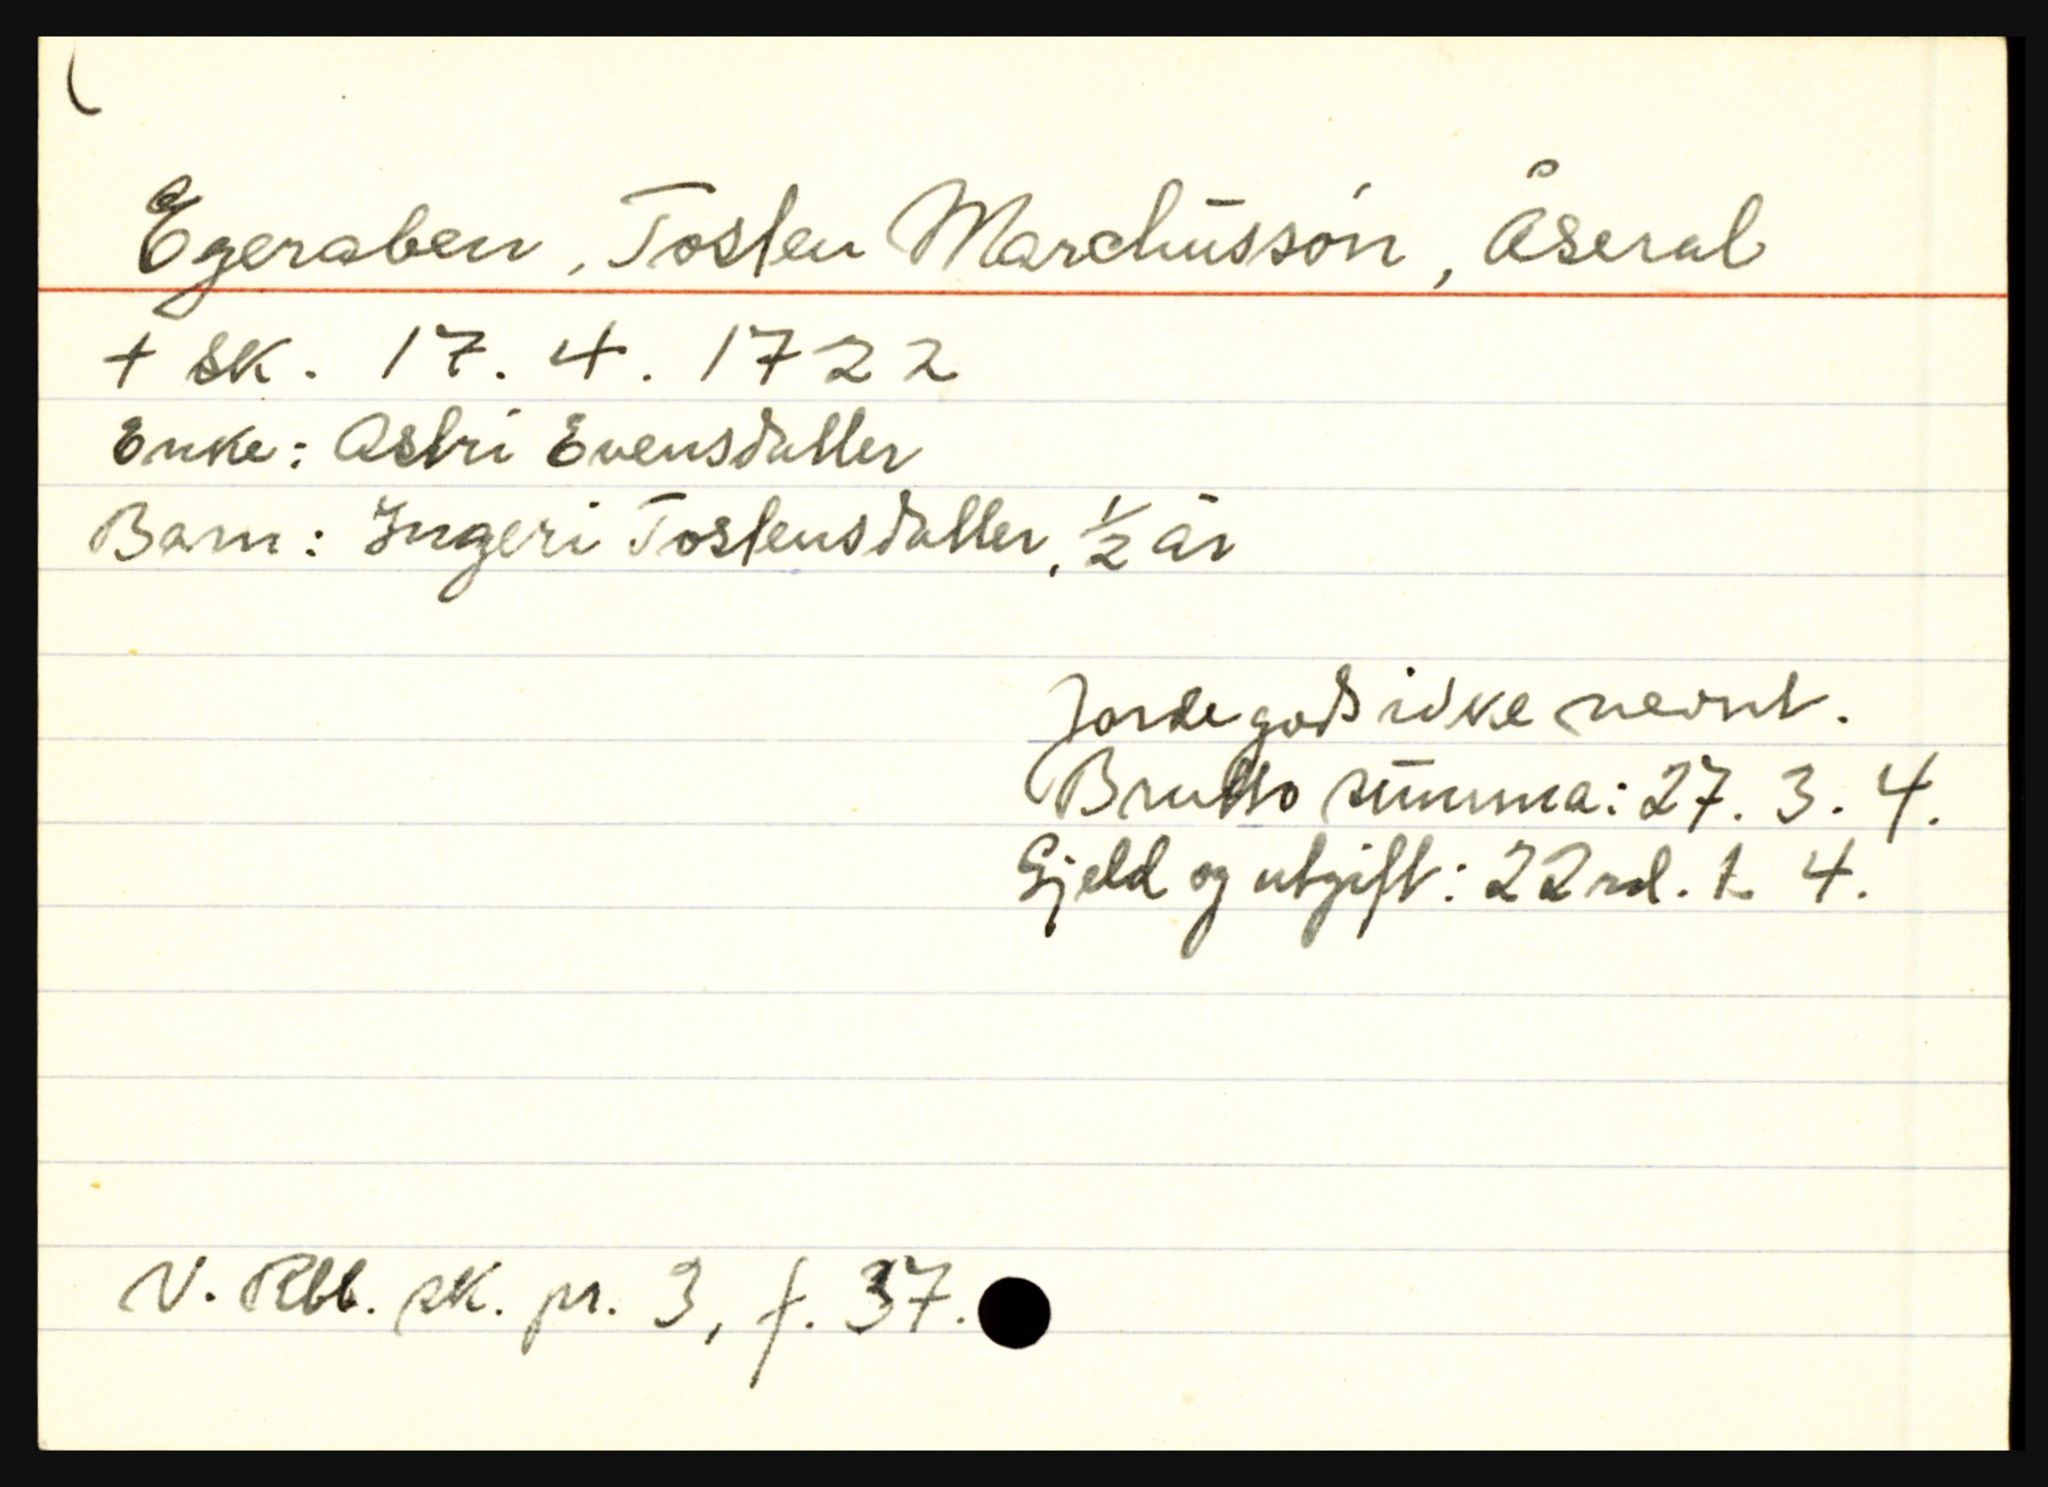 Egeraben, Tosten Marchussøn, Åseral
+ sk. 17. 4. 1722
Enke: Astri Evensdatter
Barn: Ingeri Tostensdatter, ½ år
Jordegods ikke nevnt.
Brutto summa: 27. 3. 4.
Gjeld og utgift: 22 rd. 1. 4.
V. Rbl. sk. pr. 3, f. 37.